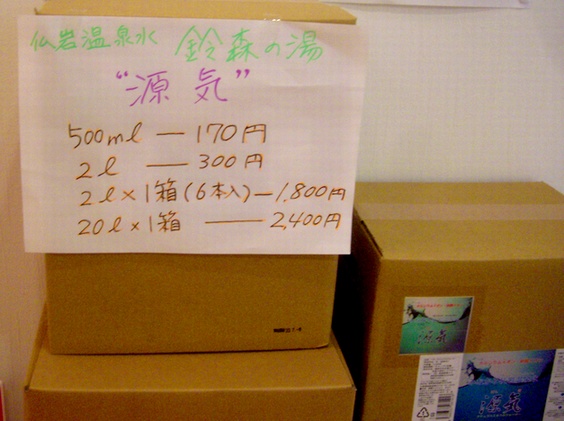 仏岩温泉水 鈴森の湯
“源気”
500ml — 170円
2l — 300円
2l×1箱(6本入) — 1.800円
20l×1箱 — 2,400円
源気
源気